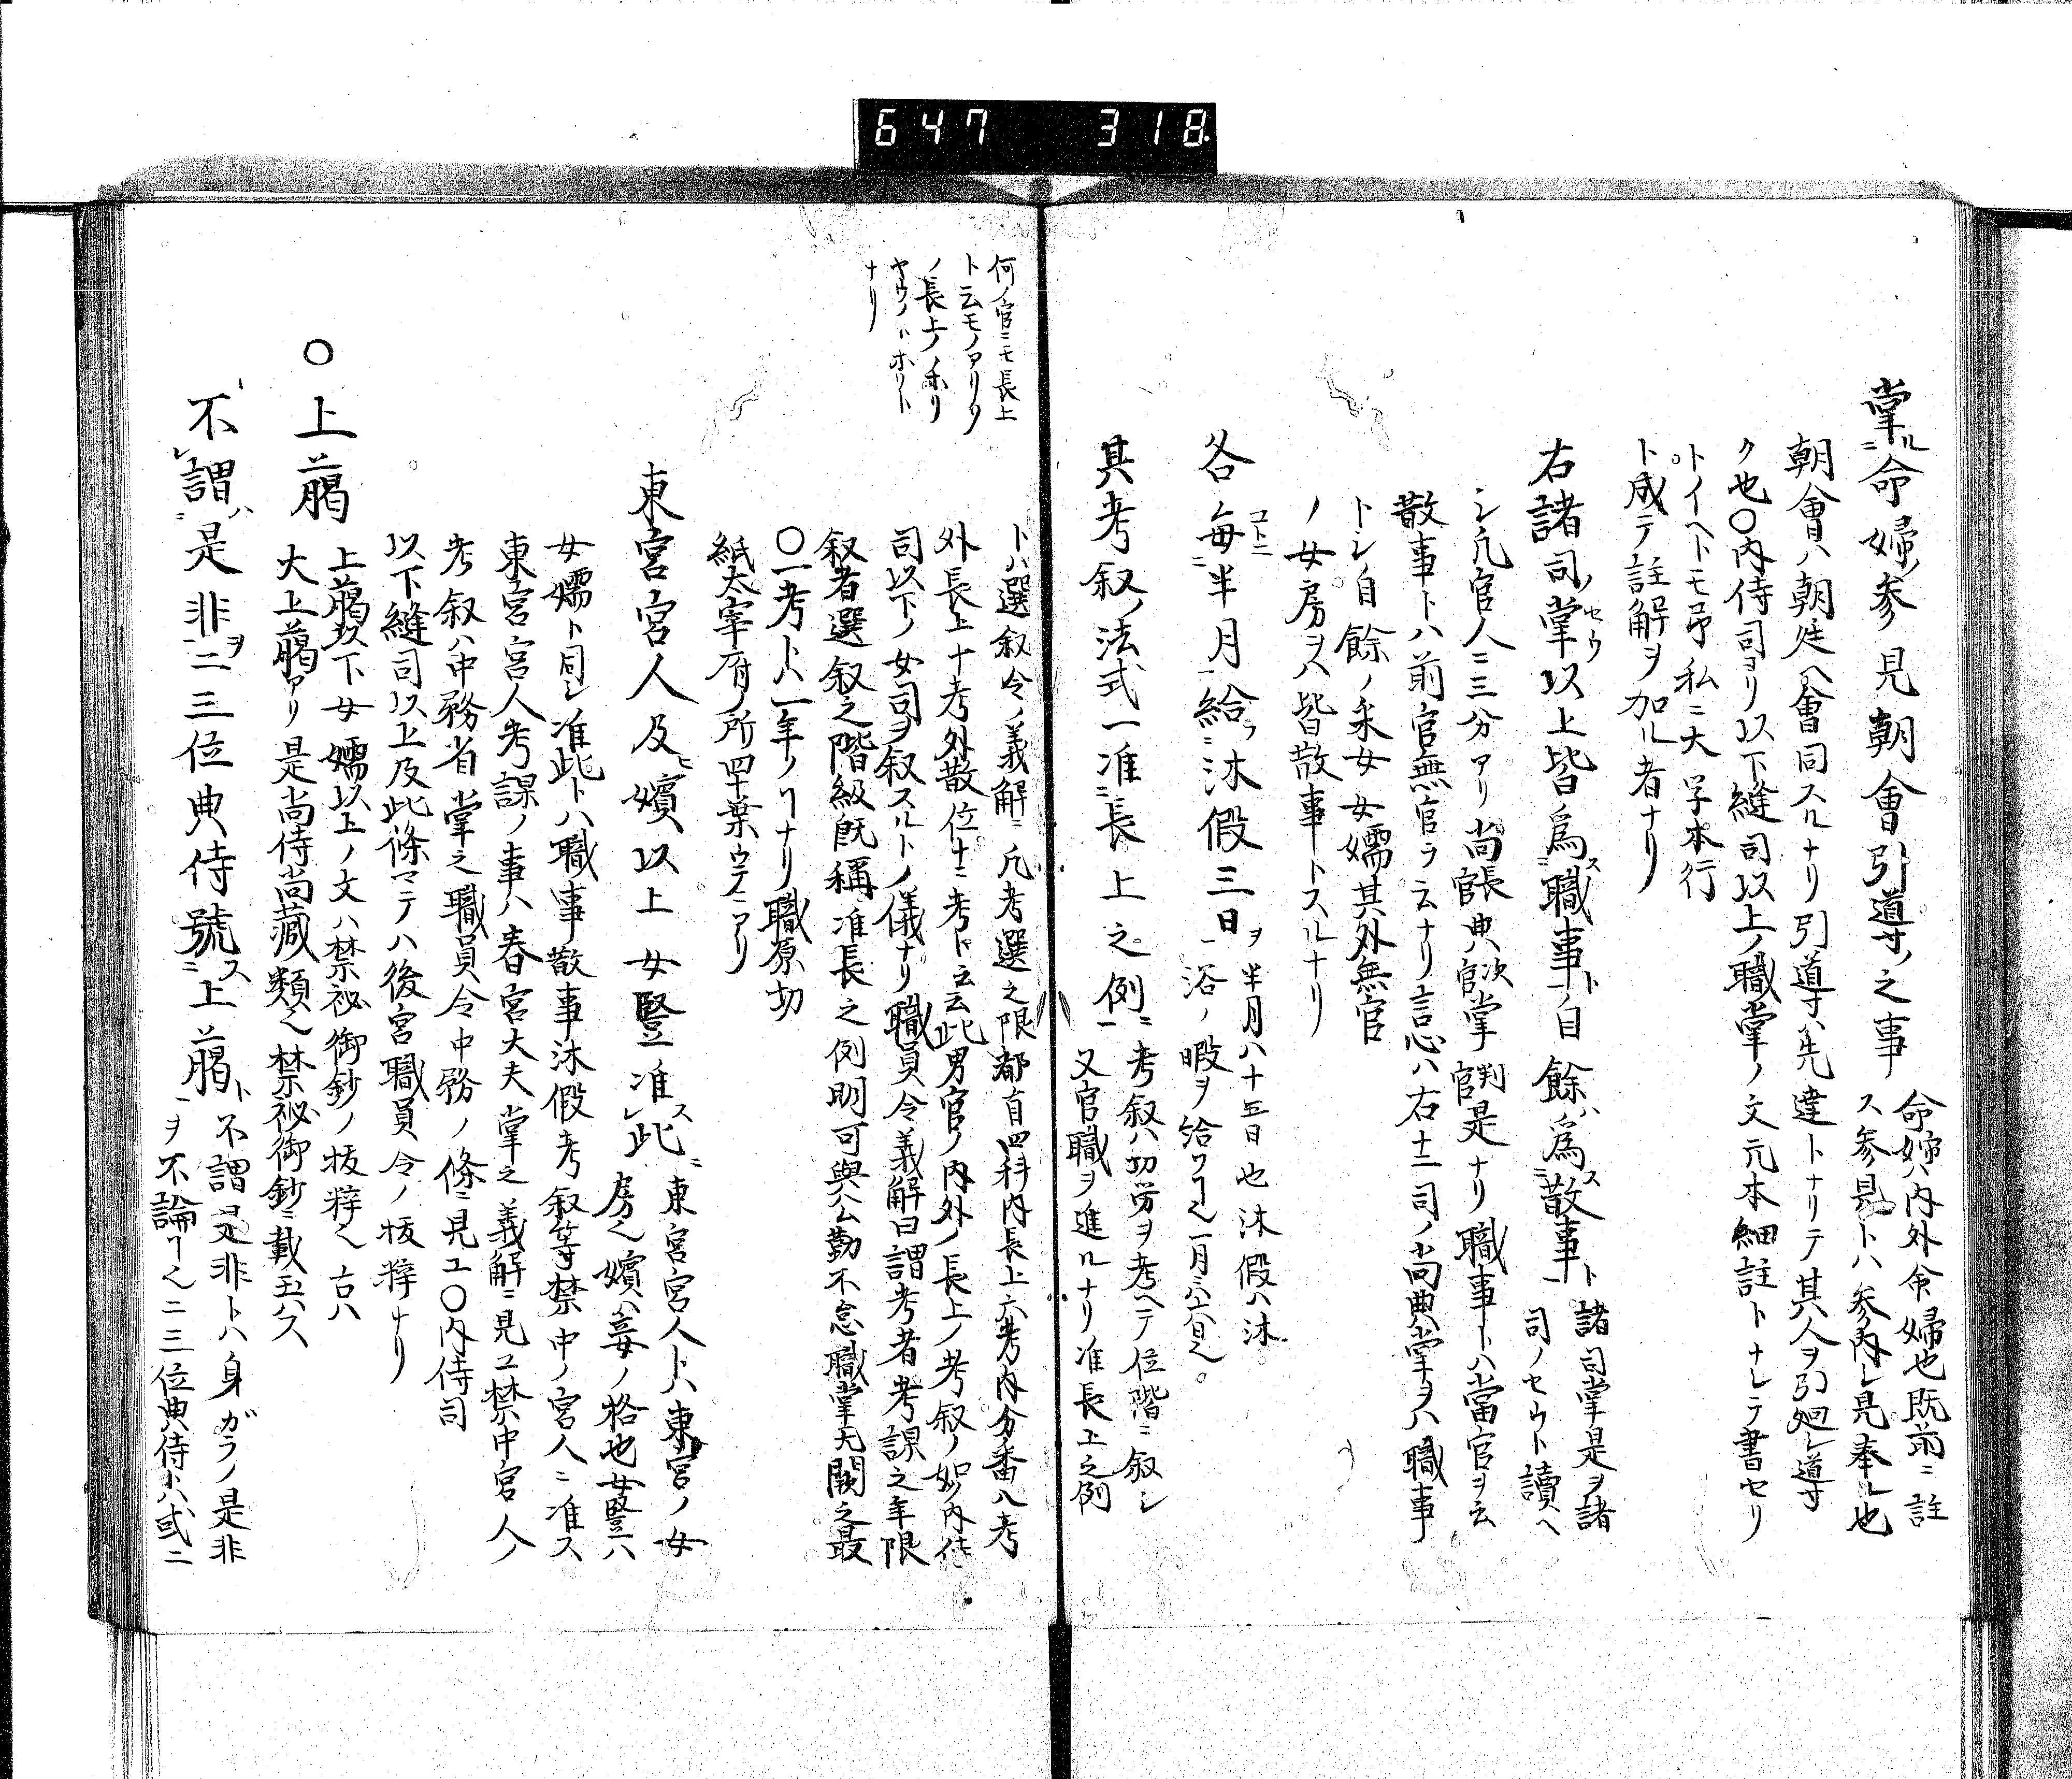 647 318
掌ル命婦ノ参見朝會引導ノ之事
命婦ハ内外命婦也既ニ前ニ註
ス参見トハ参内シ見奉ル也
朝會ハ朝廷ヘ會同スルナリ引導ハ先達トナリテ其人ヲ引廻シ導
ク也〇内侍司ヨリ以下縫司以上ノ職掌ノ文元本細註トナシテ書セリ
トイヘトモ予私ニ大字本行
ト成テ註解ヲ加ル者ナリ
右諸司ノ掌以上皆為職事ト自餘ハ為散事ト
諸司掌是ヲ諸
司ノセウト讀ヘ
シ凡官人ニ三分アリ尚長官典次官掌判官是ナリ職事トハ當官ヲ云
散事トハ前官無官ヲ云ナリ言心ハ右十二司ノ尚典掌ヲハ職事
トシ自餘ノ采女女嬬其外無官
ノ女房ヲハ皆散事トスルナリ
各毎半月給フ沐假三日ヲ
半月ハ十五日也沐假ハ沐
浴ノ暇ヲ給フヿ也一月ニハ六日也
其考叙ノ法式一准長上之例ニ
考叙ハ功労ヲ考ヘテ位階ニ叙シ
又官職ヲ進ルナリ准長上之例
何ノ官ニモ長上
ト云モノアリソ
ノ長上ノノホリ
ヤウノトホリト
ナリ
トハ選叙令ノ義解ニ凡考選之限都有四科内長上六考内分番八考
外長上十考外散位十二考ト云云此男官ノ内外ノ長上ノ考叙ノ如内侍
司以下ノ女司ヲ叙スルトノ儀ナリ職員令義解曰謂考者考課之年限
叙者選叙之階級既稱准長之例明可與公勤不怠職掌无闕之最
〇一考トハ一年ノヿナリ職原切
紙太宰府ノ所四十葉ウラニアリ
東宮宮人及嬪以上女竪准此
東宮宮人トハ東宮ノ女
房也嬪ハ妾ノ格也女竪ハ
女嬬ト同シ准此トハ職事散事沐假考叙等禁中ノ宮人ニ准ス
東宮宮人考課ノ事ハ春宮大夫掌之義解ニ見ユ禁中宮人ノ
考叙ハ中務省掌之職員令中務ノ條ニ見ユ〇内侍司
以下縫司以上及此條マテハ後宮職員令ノ抜粹ナリ
〇上﨟
上﨟以下女嬬以上ノ文ハ禁祕御鈔ノ抜粹也古ハ
大上﨟アリ是尚侍尚藏類也禁祕御鈔ニ載玉ハス
不謂是非ヲ二三位典侍號ス上﨟ト
不謂是非トハ身ガラノ是非
ヲ不論ヿ也二三位典侍トハ或ニ